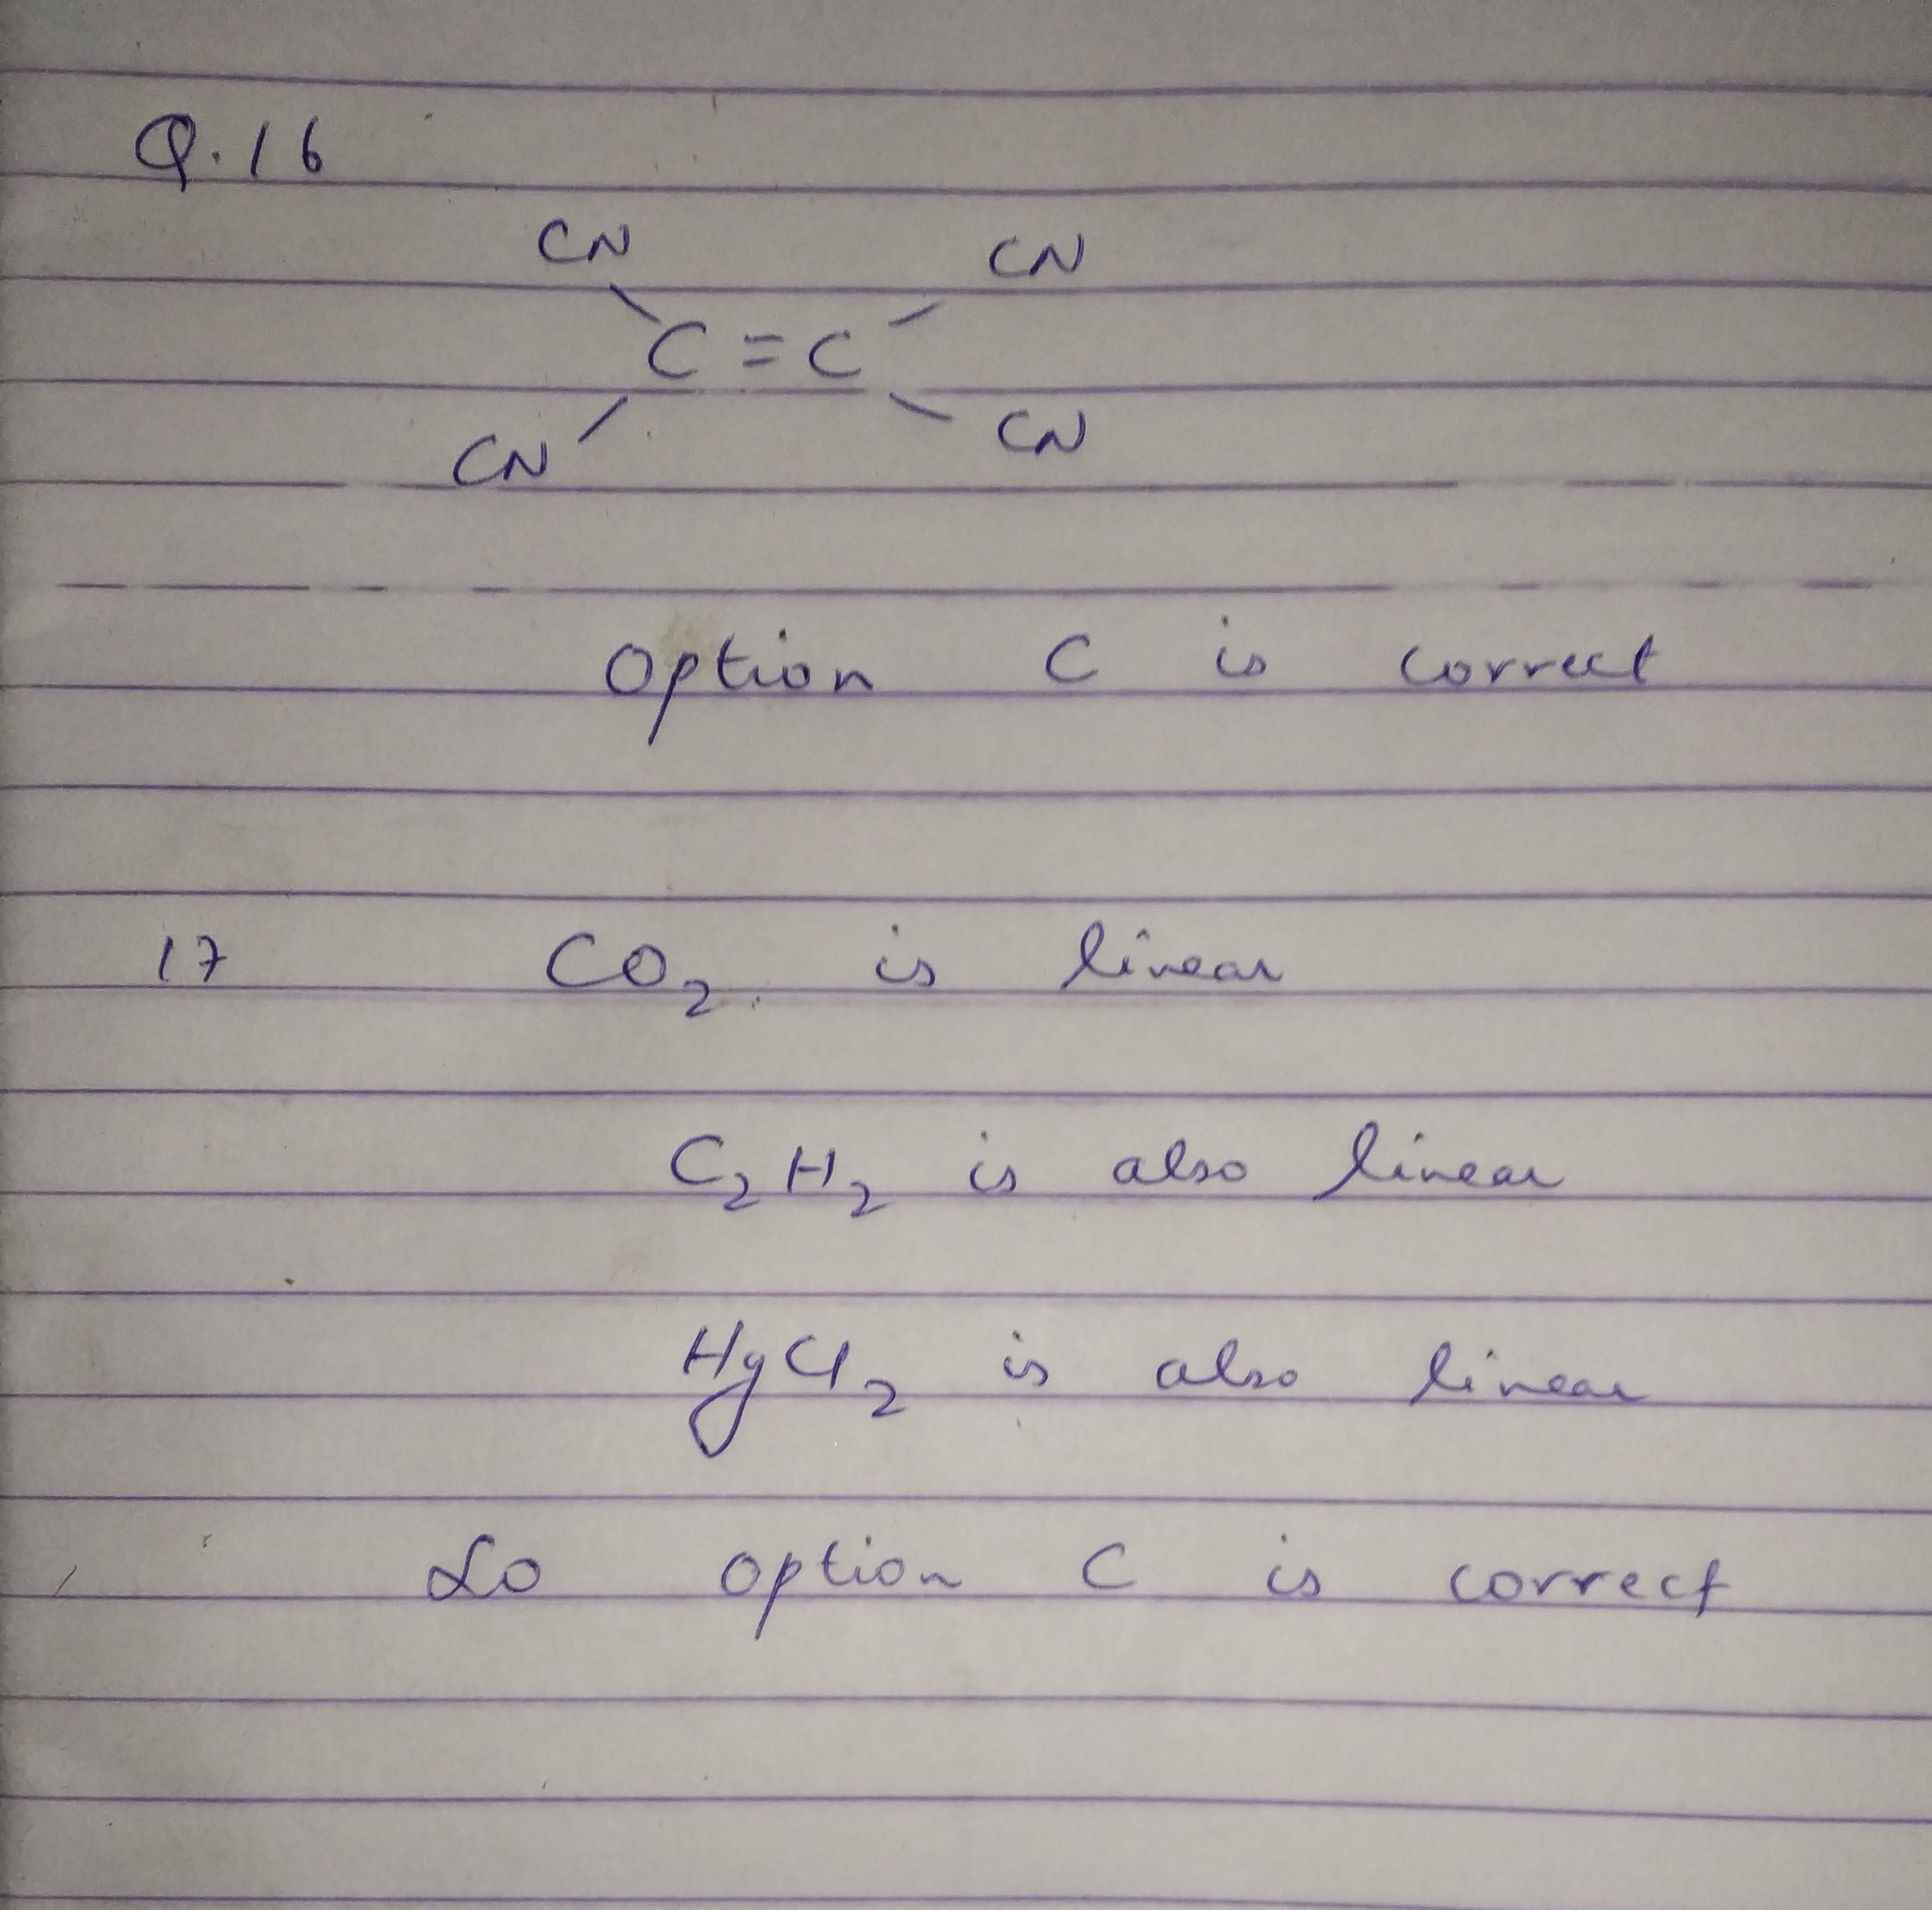 Q.16
CN CN
C = C
CN CN
Option C is correct
17 CO2 is linear
C2H2 is also linear
HgCl2 is also linear
So option C is correct